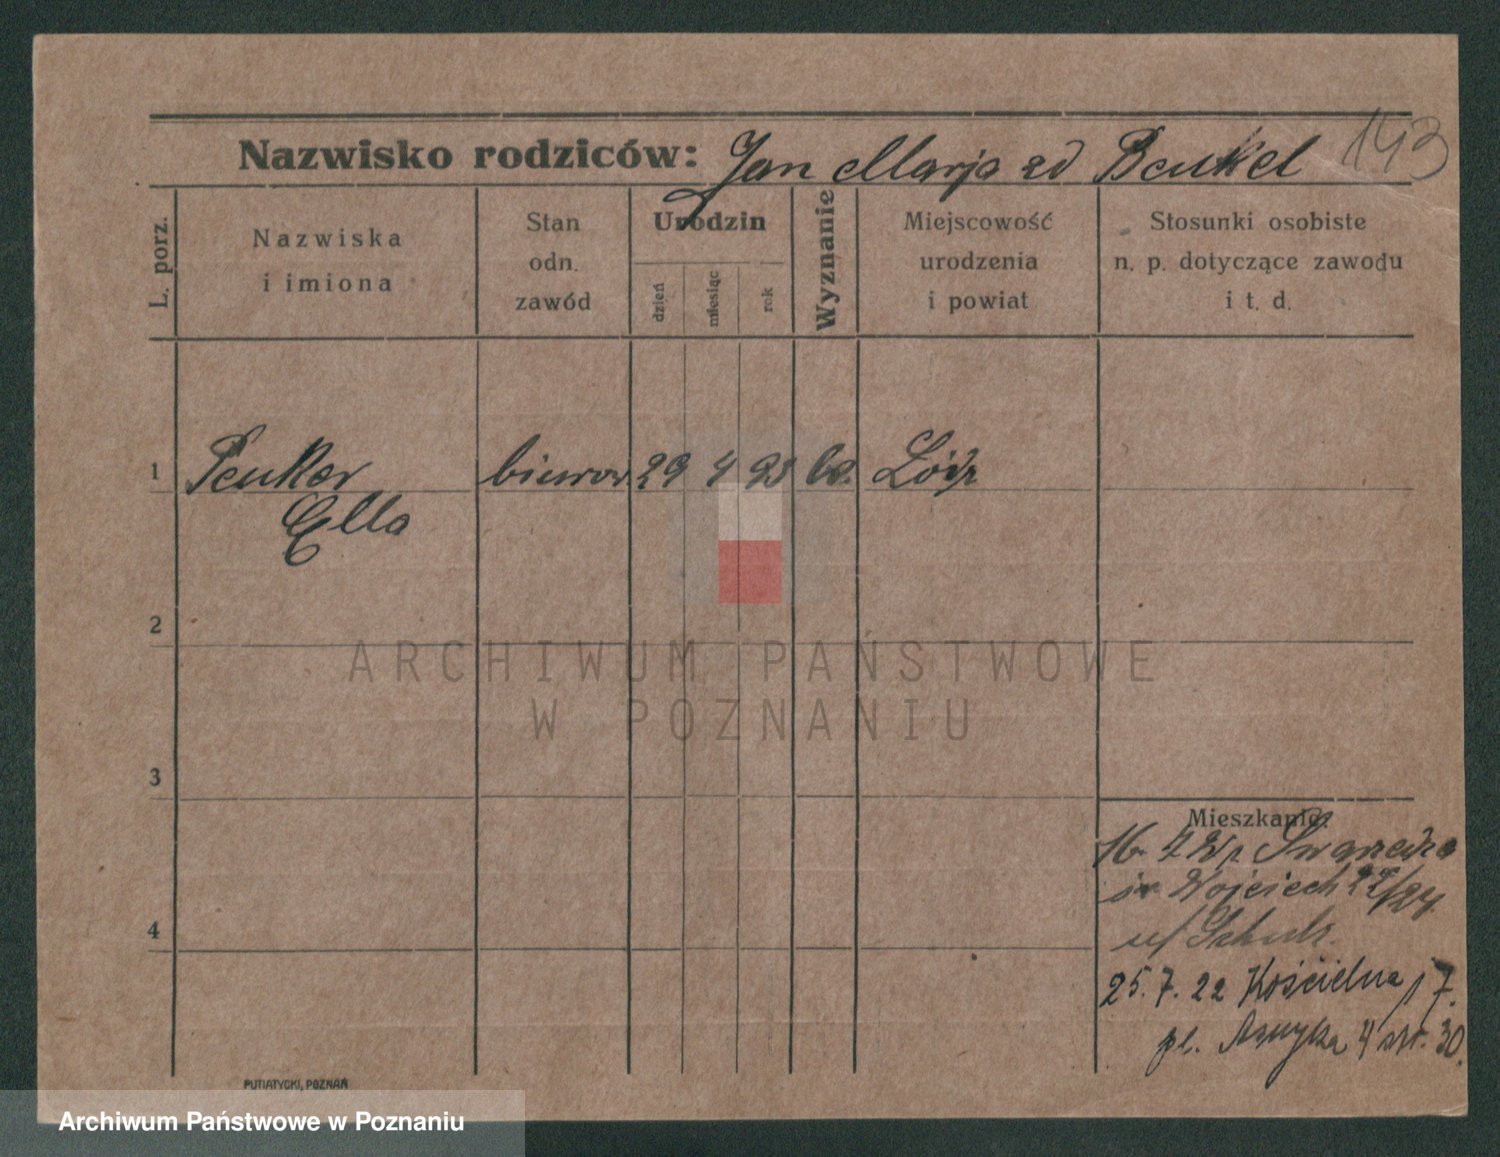 Nazwisko rodziców: Jan Marja zd Benkel 143
L. porz.
Nazwiska
i imiona
Stan
odn.
zawód
Urodzin
dzień
miesiąc
rok
Wyznanie
Miejscowość
urodzenia
i powiat
Stosunki osobiste
n. p. dotyczące zawodu
i t. d.
1 Penker biurow 29 4 95 Łódź
Ella
2
3
4
Mieszkanie:
16. 7
św Wojciech
u/ Schulz.
25. 7. 22 Kościelna 17.
pl. Asnyka 4 30.
PUTIATYCKI, POZNAŃ
ARCHIWUM PAŃSTWOWE
W POZNANIU
Archiwum Państwowe w Poznaniu